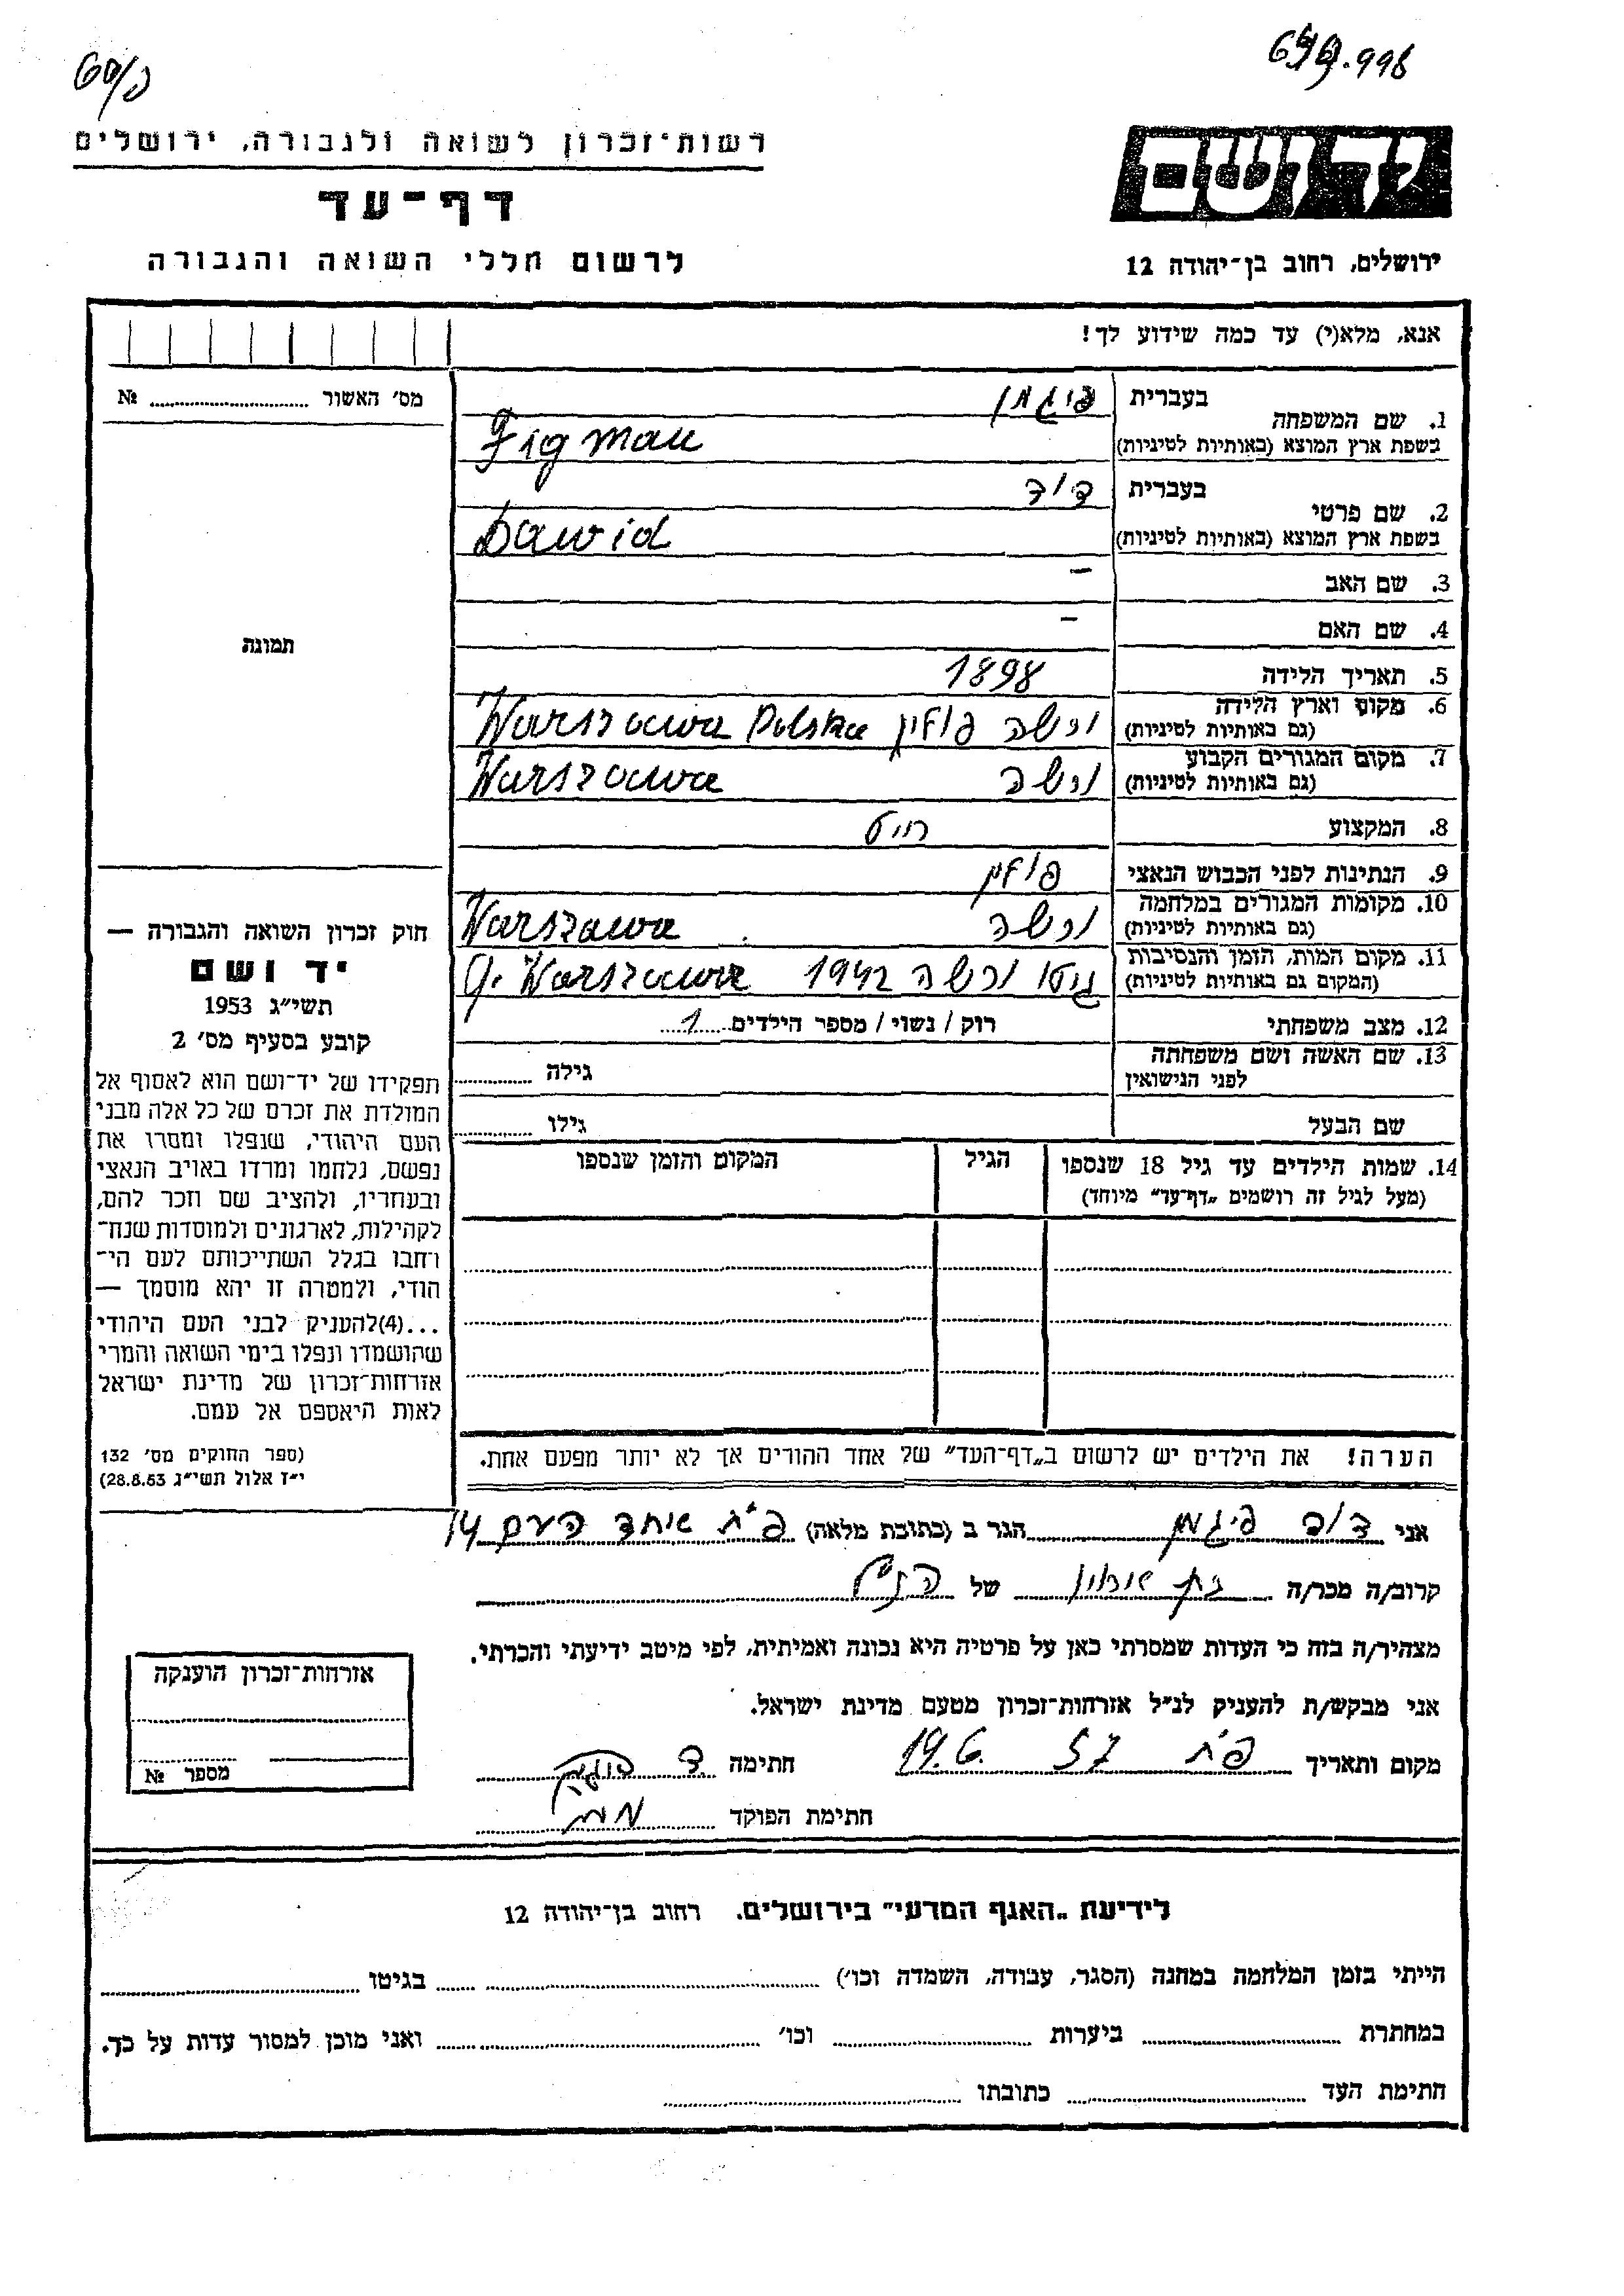 רשות־זכרון לשואה ולגבורה, ירושלים
דף־עד
לרשום חללי השואה והגבורה
יד ושם
ירושלים, רחוב בן־יהודה 12
אנא, מלא(י) עד כמה שידוע לך!
מס׳ האשור № ........
תמונה
1. שם המשפחה
בעברית פיגמן
בשפת ארץ המוצא (באותיות לטיניות) Figman
2. שם פרטי
בעברית דוד
בשפת ארץ המוצא (באותיות לטיניות) Dawid
3. שם האב –
4. שם האם –
5. תאריך הלידה 1898
6. מקום וארץ הלידה ורשה פולין Warszawa Polska
(גם באותיות לטיניות)
7. מקום המגורים הקבוע ורשה Warszawa
(גם באותיות לטיניות)
8. המקצוע חיט
9. הנתינות לפני הכבוש הנאצי פולין
10. מקומות המגורים במלחמה ורשה Warszawa
(גם באותיות לטיניות)
11. מקום המות, הזמן והנסיבות גיטו ורשה 1942 g. Warszawa
(המקום גם באותיות לטיניות)
12. מצב משפחתי רוק / נשוי / מספר הילדים 1
13. שם האשה ושם משפחתה
לפני הנישואין גילה
שם הבעל גילו
14. שמות הילדים עד גיל 18 שנספו הגיל המקום והזמן שנספו
(מעל לגיל זה רושמים „דף־עד״ מיוחד)
הערה! את הילדים יש לרשום ב„דף־העד״ של אחד ההורים אך לא יותר מפעם אחת.
חוק זכרון השואה והגבורה —
יד ושם
תשי״ג 1953
קובע בסעיף מס׳ 2
תפקידו של יד־ושם הוא לאסוף אל
המולדת את זכרם של כל אלה מבני
העם היהודי, שנפלו ומסרו את
נפשם, נלחמו ומרדו באויב הנאצי
ובעוזריו, ולהציב שם וזכר להם,
לקהילות, לארגונים ולמוסדות שנח־
רחבו בגלל השתייכותם לעם הי־
הודי, ולמטרה זו יהא מוסמך —
...(4)להעניק לבני העם היהודי
שהושמדו ונפלו בימי השואה והמרי
אזרחות־זכרון של מדינת ישראל
לאות היאספם אל עמם.
(ספר החוקים מס׳ 132
י״ז אלול תשי״ג 28.8.53)
אני דוב פיגמן הגר ב (כתובת מלאה) פ״ת אחד העם 14
קרוב/ה מכר/ה בן של הנ״ל
מצהיר/ה בזה כי העדות שמסרתי כאן על פרטיה היא נכונה ואמיתית, לפי מיטב ידיעתי והכרתי.
אני מבקש/ת להעניק לנ״ל אזרחות־זכרון מטעם מדינת ישראל.
מקום ותאריך פ״ת 19.6.57 חתימה ד פיגמן
חתימת הפוקד
אזרחות־זכרון הוענקה
מספר №
לידיעת „האגף המדעי״ בירושלים, רחוב בן־יהודה 12
הייתי בזמן המלחמה במחנה (הסגר, עבודה, השמדה וכו׳) ........ בגיטו ........
במחתרת ........ ביערות ........ וכו׳ ........ ואני מוכן למסור עדות על כך.
חתימת העד ........ כתובתו ........